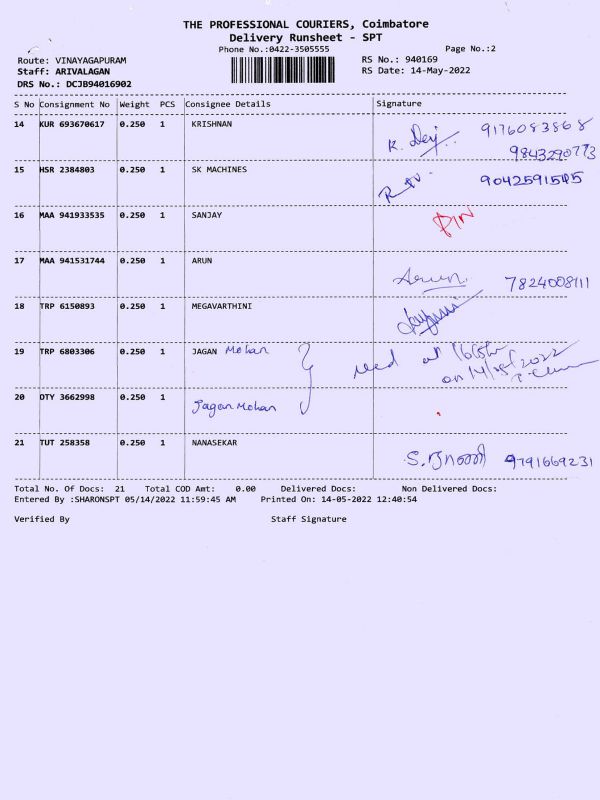 THE PROFESSIONAL COURIERS, Coimbatore
Delivery Runsheet - SPT
Phone No.:0422-3505555
Page No.:2
Route: VINAYAGAPURAM
RS No.: 940169
Staff: ARIVALAGAN
RS Date: 14-May-2022
DRS No.: DCJB94016902
S No Consignment No Weight PCS Consignee Details Signature
14 KUR 693670617 0.250 1 KRISHNAN K. 9176083868
9843290773
15 HSR 2384803 0.250 1 SK MACHINES 9042591545
16 MAA 941933535 0.250 1 SANJAY
17 MAA 941531744 0.250 1 ARUN Arun. 7824008111
18 TRP 6150893 0.250 1 MEGAVARTHINI
19 TRP 6803306 0.250 1 JAGAN Mohan
on 14/05/2022
20 DTY 3662998 0.250 1 Jagan Mohan
21 TUT 258358 0.250 1 NANASEKAR 9791669231
Total No. Of Docs: 21 Total COD Amt: 0.00 Delivered Docs: Non Delivered Docs:
Entered By :SHARONSPT 05/14/2022 11:59:45 AM Printed On: 14-05-2022 12:40:54
Verified By Staff Signature